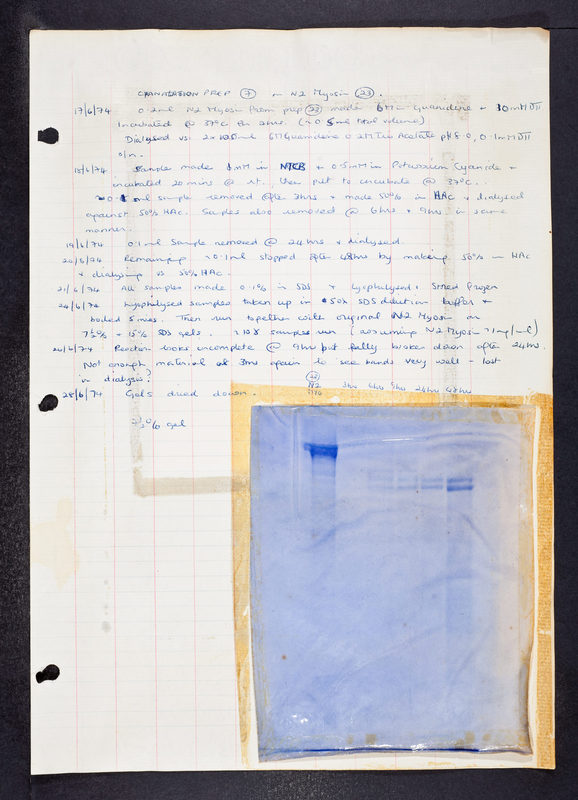 CYANYLATION PREP 7 on N2 Myosin 23.
17/6/74 0.2ml N2 Myosin from prep 23 made 6M in Guanidine + 10mM DTT
Incubated @ 37°C for 2hrs (~0.5ml total volume)
Dialysed vs. 2x125ml 6M Guanidine 0.2M Tris Acetate pH 8.0, 0.1mM DTT
o/n.
18/6/74 Sample made 1mM in NTCB + 0.5mM in Potassium Cyanide +
incubated 20 mins @ rt. then put to incubate @ 37°C.
~0.1ml sample removed after 3hrs + made 50% in HAc + dialysed
against 50% HAc. Samples also removed @ 6hrs + 9hrs in same
manner.
19/6/74 0.1ml Sample removed @ 24hrs + dialysed.
20/6/74 Remaining ~0.1ml stopped after 48hrs by making 50% in HAc
+ dialysing vs 50% HAc.
21/6/74 All samples made 0.1% in SDS + lyophilysed + stored frozen
24/6/74 Lyophilysed samples taken up in 50λ SDS dilution buffer +
boiled 5 mins. Then run together with original N2 Myosin on
7½% + 15% SDS gels. samples run (assuming N2 Myosin 1mg/ml)
26/6/74 Reaction looks incomplete @ 9hrs but fully broken down after 24hrs.
Not enough material at 3hrs again to see bands very well - lost
in dialysis.
28/6/74 Gels dried down.
23
N2 3hrs 6hrs 9hrs 24hrs 48hrs
7½% gel